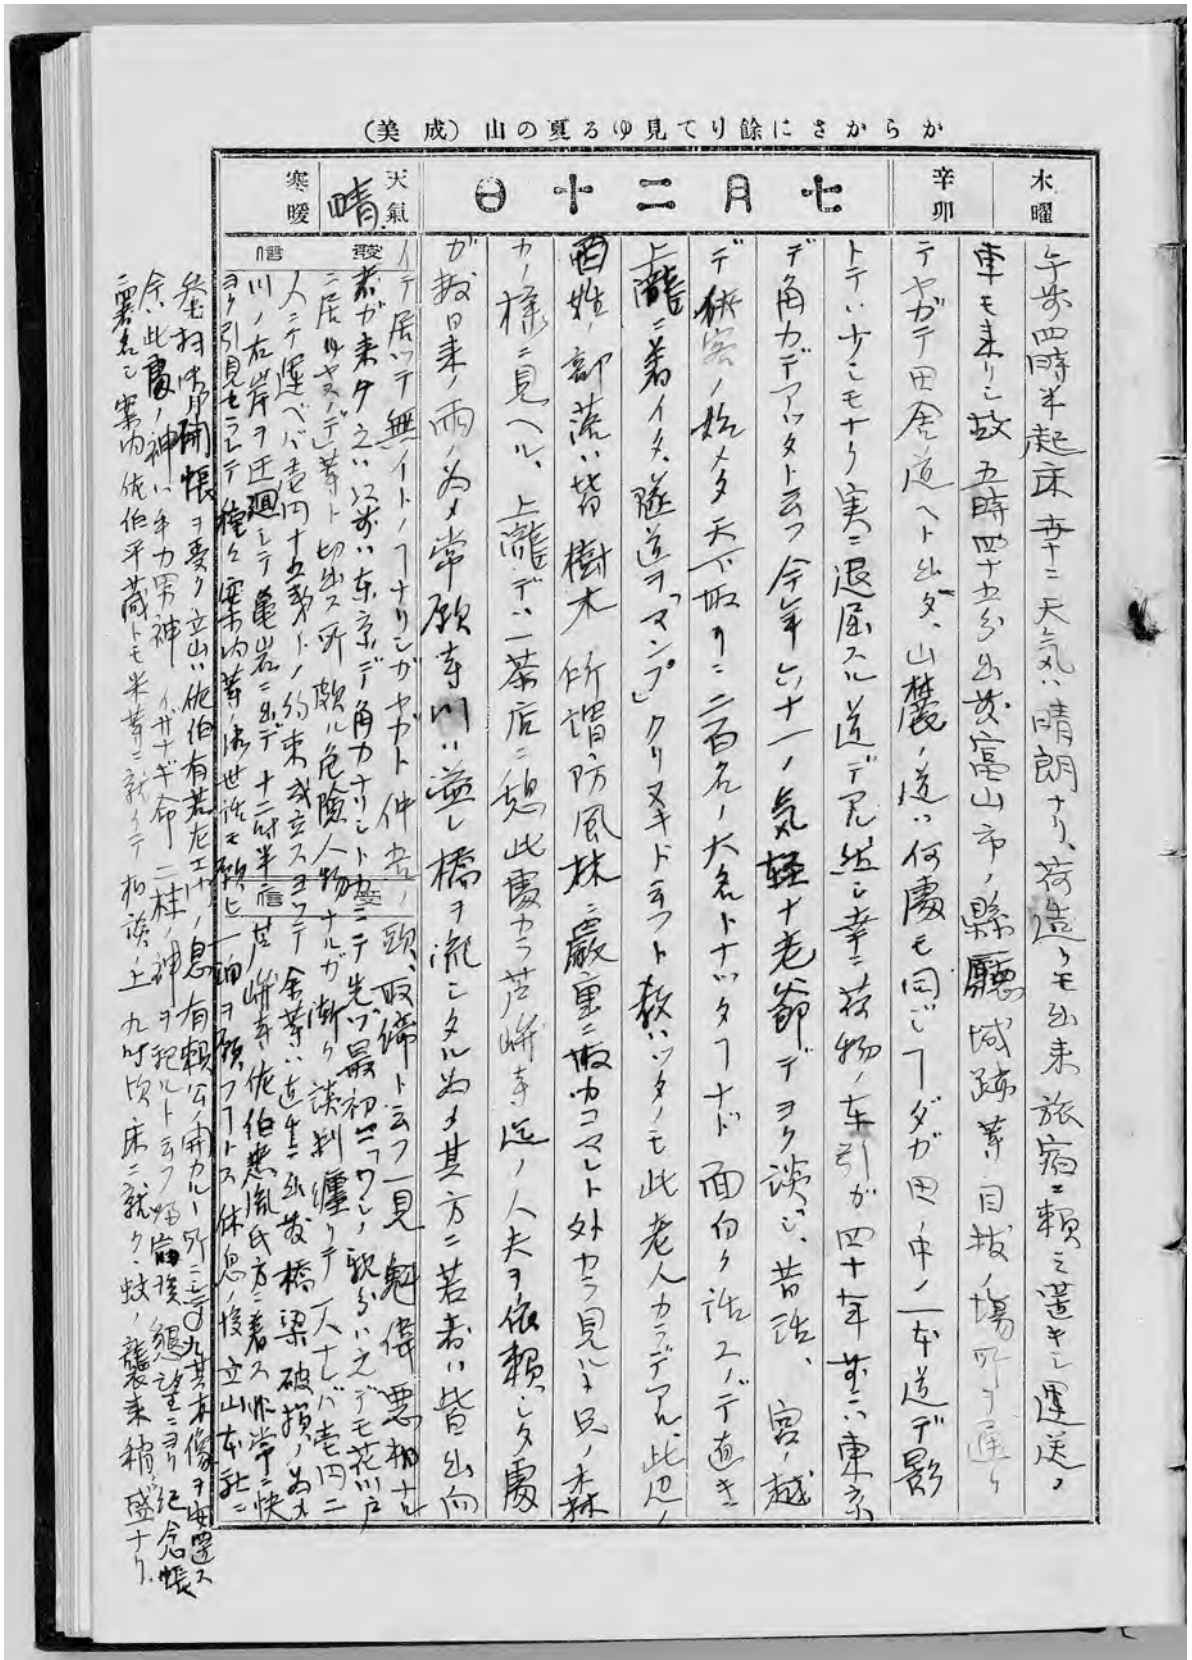 かからさに餘りて見ゆる夏の山（成美）
木曜
辛卯
七月二十日
天氣
晴
寒暖
發信
受信
午前四時半起床 幸ニ天気ハ晴朗ナリ、荷造リモ出来 旅宿ニ頼ミ置キシ運送ノ
車モ来リシ故 五時四十五分出発富山市ノ縣廳城跡等 目抜ノ場所ヲ通リ
テヤガテ田舎道ヘト出ダ、山麓ノ道ハ何處モ同ジヿダガ田ノ中ノ一本道デ影
トテハ少シモナク実ニ退屈スル道デアル然シ幸ニ荷物ノ車引ガ四十年前ニハ東京
デ角力デアツタト云フ今年六十一ノ気軽ナ老爺デヨク談ジ、昔話、宮ノ越
デ侠客ノ始メタ天下取リニ二百名ノ大名トナツタヿナド面白ク話スノデ直キニ
上瀧ニ着イタ、隧道ヲ「マンプ」クリヌキド云フト教ハツタノモ此老人カラデアル、此辺ノ
百姓ノ部落ハ皆樹木 所謂防風林ニ嚴重ニ取カコマレト外カラ見ルト只ノ森
カノ様ニ見ヘル、上瀧デハ一茶店ニ憩此處カラ芦峅寺迄ノ人夫ヲ依頼シタ處
ガ数日来ノ雨ノ為メ常願寺川ハ溢レ橋ヲ流シタル為メ其方ニ若者ハ皆出向
イテ居ツテ無イトノヿナリシガヤガト仲者ノ頭、取締ト云フ一見魁偉悪相ナル
者ガ来タ之ハ以前ハ東京デ角力ナリシトカニテ先ヅ最初ニ「ワシノ親分ハ之デモ花川戸
ニ居リヤスノデ」等ト切出ス所 頗ル危険人物ナルガ漸ク談判纏リテ一人ナレバ壱円二
人ニテ運ベバ壱円十五銭ノ約束成立スヨツテ余等ハ直チニ出発橋梁破損ノ為メ
川ノ右岸ヲ迂廻シテ亀岩ニ出デ十二時半 芦峅寺佐伯 氏方ニ着ス非常ニ快
ヨク引見セラレテ種々案内等ノ御世話モ頼ヒ一泊ヲ願フヿトス休息ノ後立山本社ニ
参拝 開帳ヲ受ク立山ハ佐伯有若左エ門ノ息 有頼公ノ開カルヽ所ニシテ其木像ヲ安置ス
今ハ此處ノ神ハ手力男神 イザナギ命 二柱ノ神ヲ祀ルト云フ帰宿後懇望ニヨリ紀念帳
ニ署名シ案内佐伯平蔵トモ米等ニ就イテ相談ノ上 九時頃床ニ就ク、蚊ノ襲来稍盛ナリ